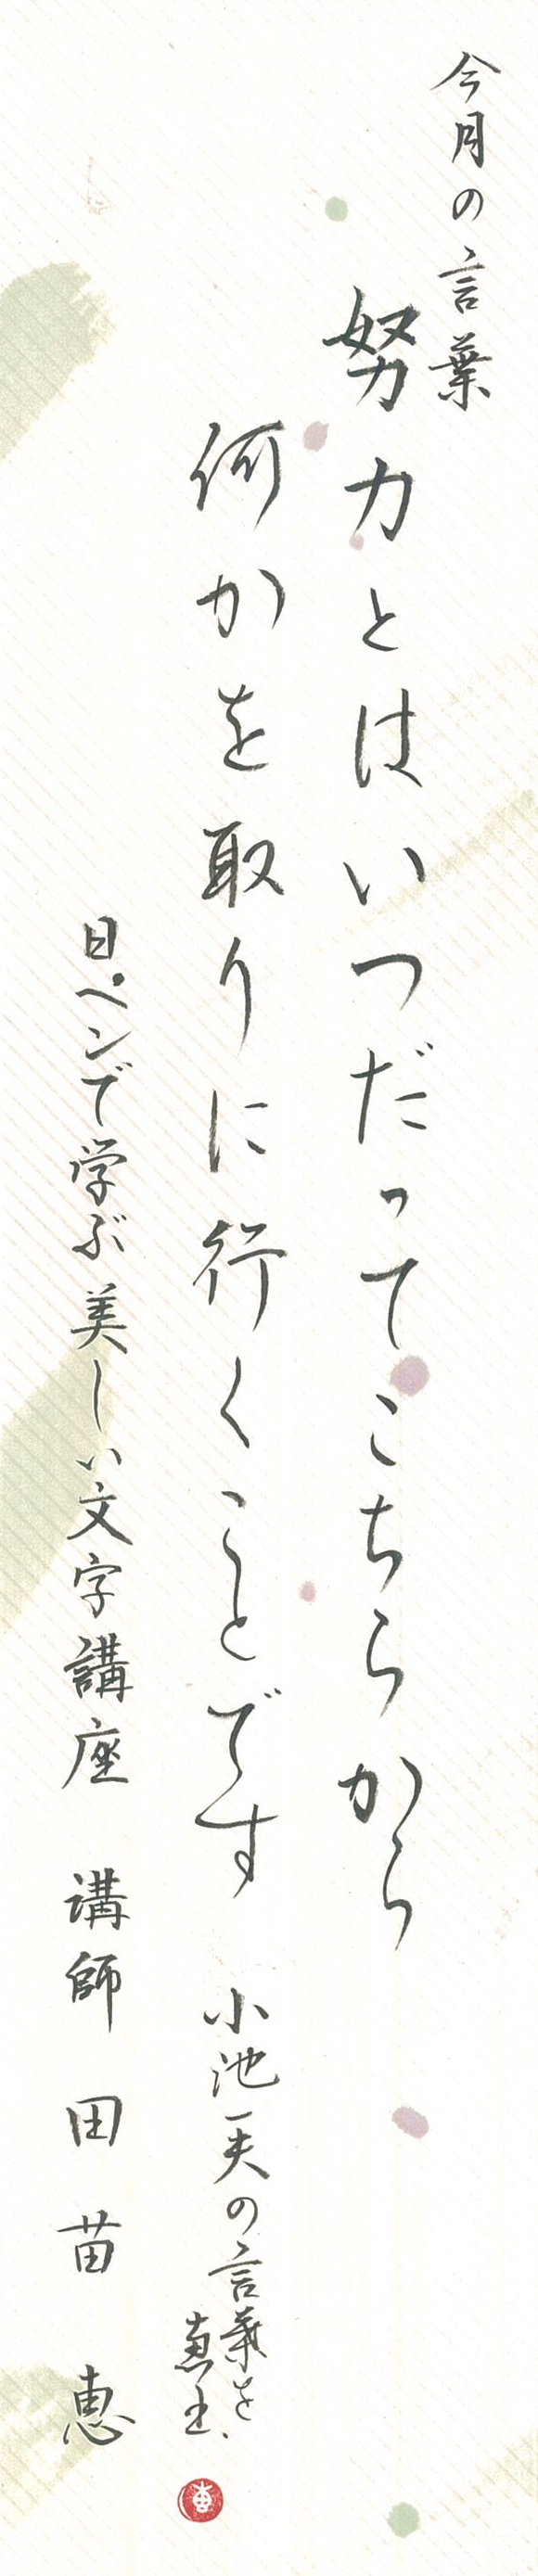 今月の言葉
努力とはいつだってこちらから
何かを取りに行くことです
小池一夫の言葉を
恵主、
日ペンで学ぶ美しい文字講座 講師 田苗 恵